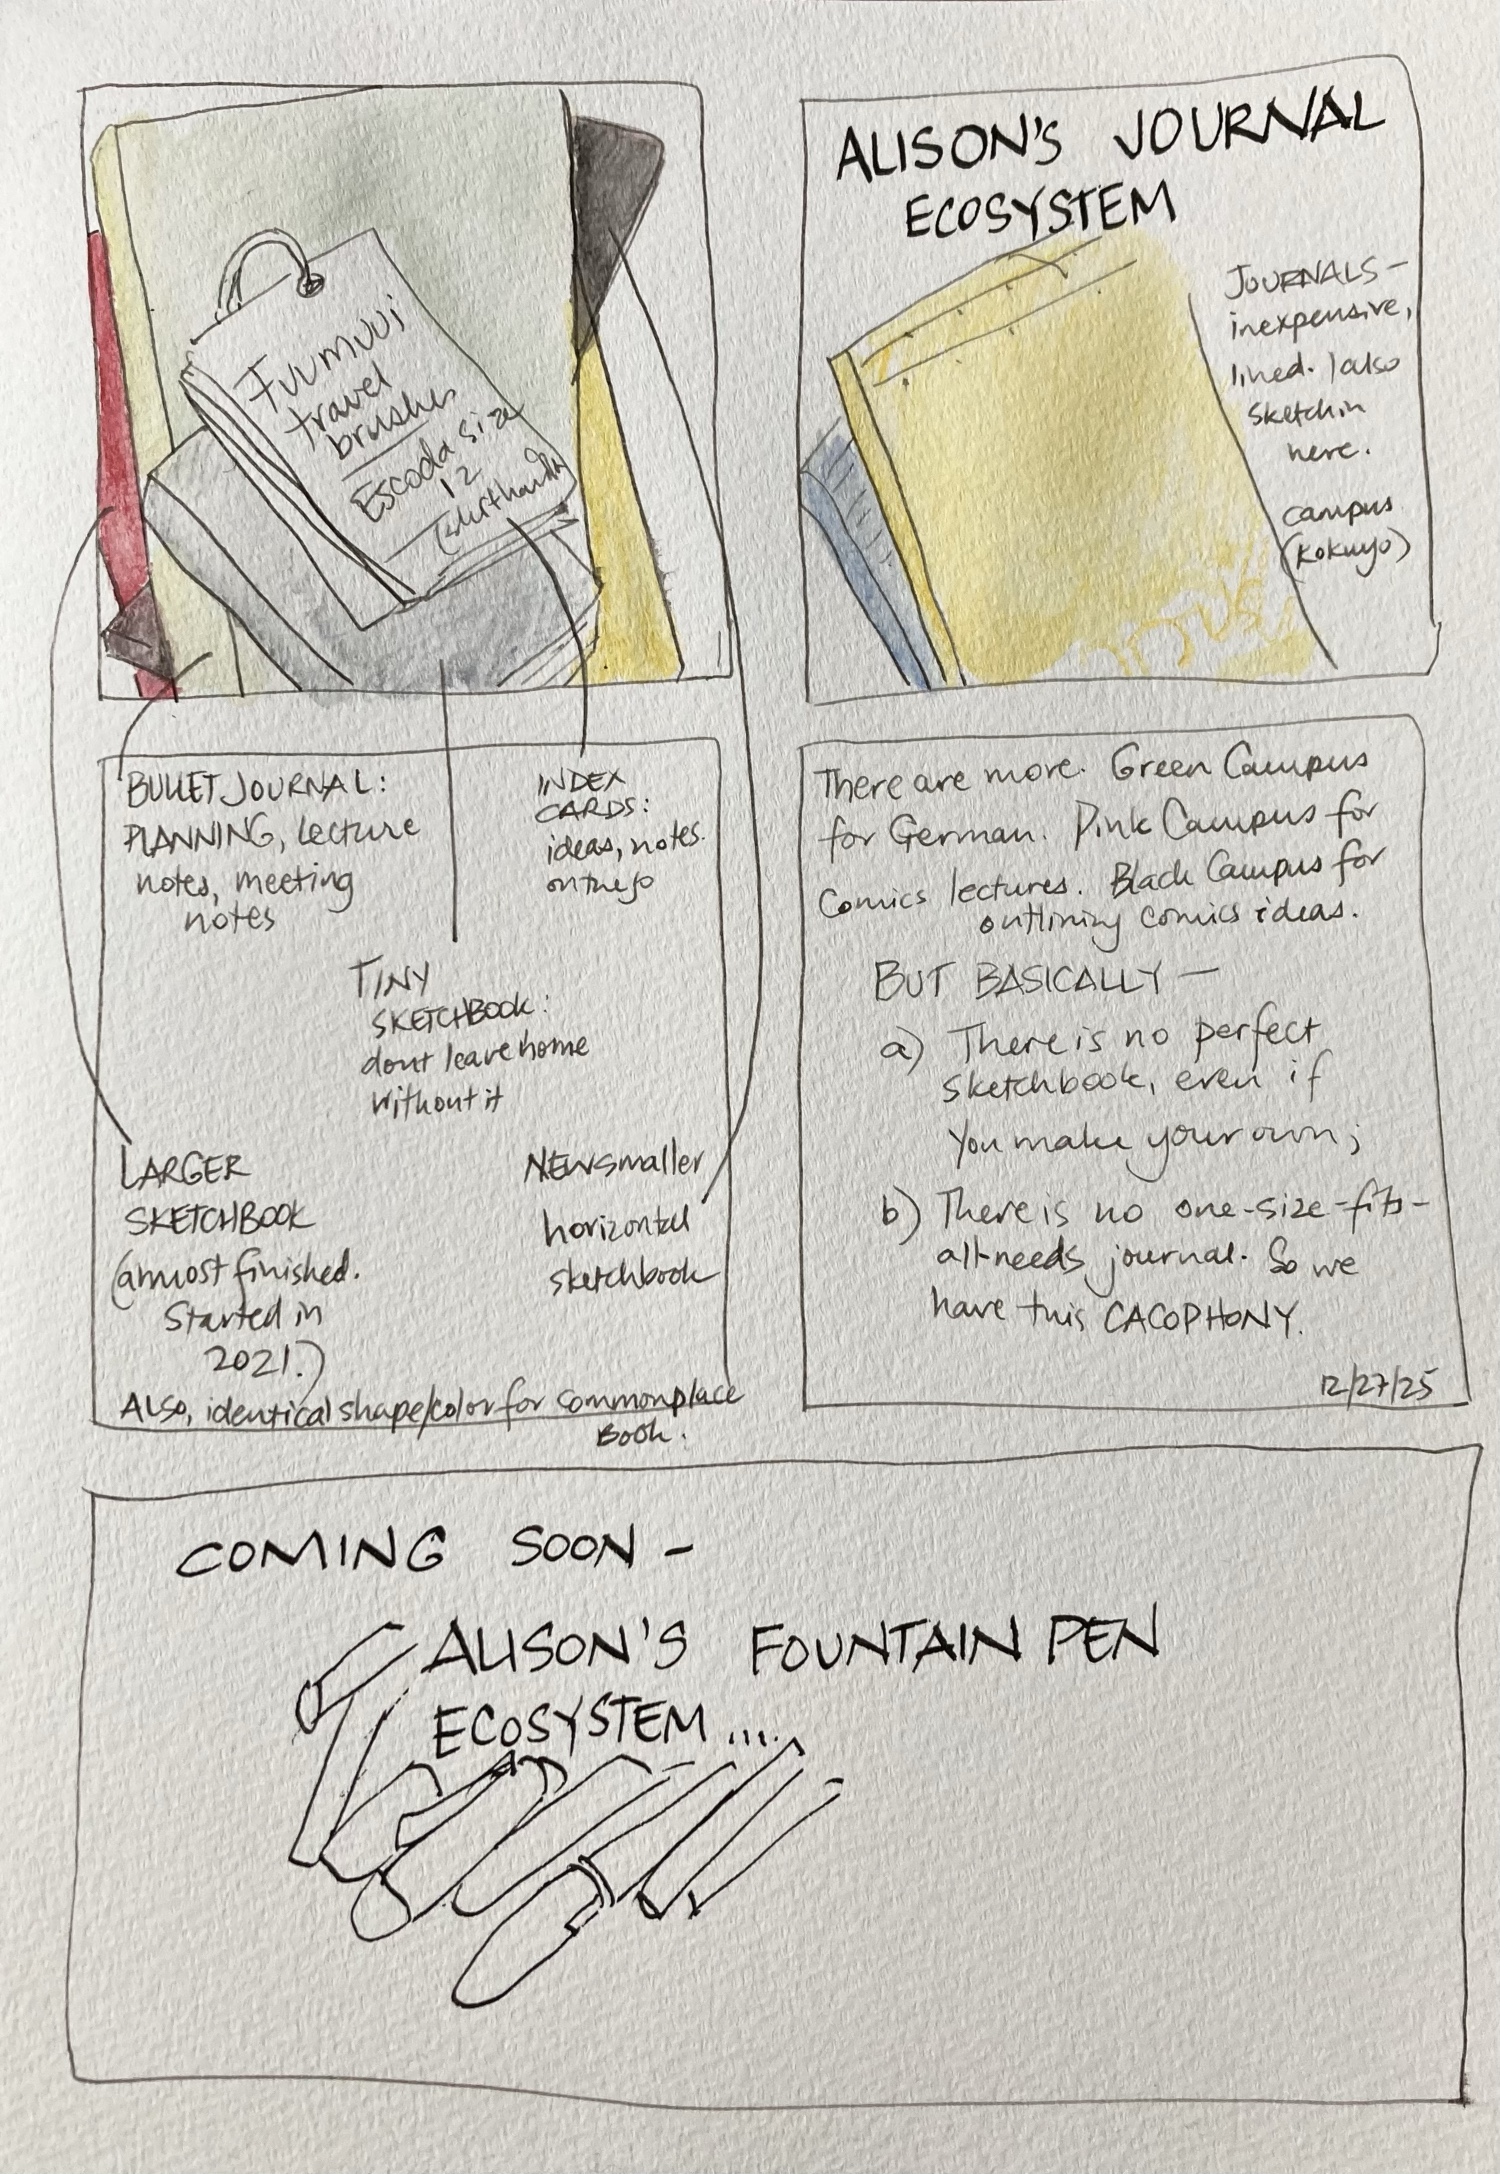 Fuumuui
travel
brushes
Escoda size
12
ALISON'S JOURNAL
ECOSYSTEM
JOURNALS—
inexpensive,
lined. I also
sketch in
here.
campus
(Kokuyo)
BULLET JOURNAL:
PLANNING, lecture
notes, meeting
notes
INDEX
CARDS:
ideas, notes
on the go
TINY
SKETCHBOOK:
dont leave home
without it
LARGER
SKETCHBOOK
(almost finished.
Started in
2021.)
NEW smaller
horizontal
sketchbook
ALSO, identical shape/color for commonplace
BOOK.
There are more. Green Campus
for German. Pink Campus for
Comics lectures. Black Campus for
outlining comics ideas.
BUT BASICALLY—
a) There is no perfect
sketchbook, even if
you make your own;
b) There is no one-size-fits-
all-needs journal. So we
have this CACOPHONY.
12/27/25
COMING SOON—
ALISON'S FOUNTAIN PEN
ECOSYSTEM....